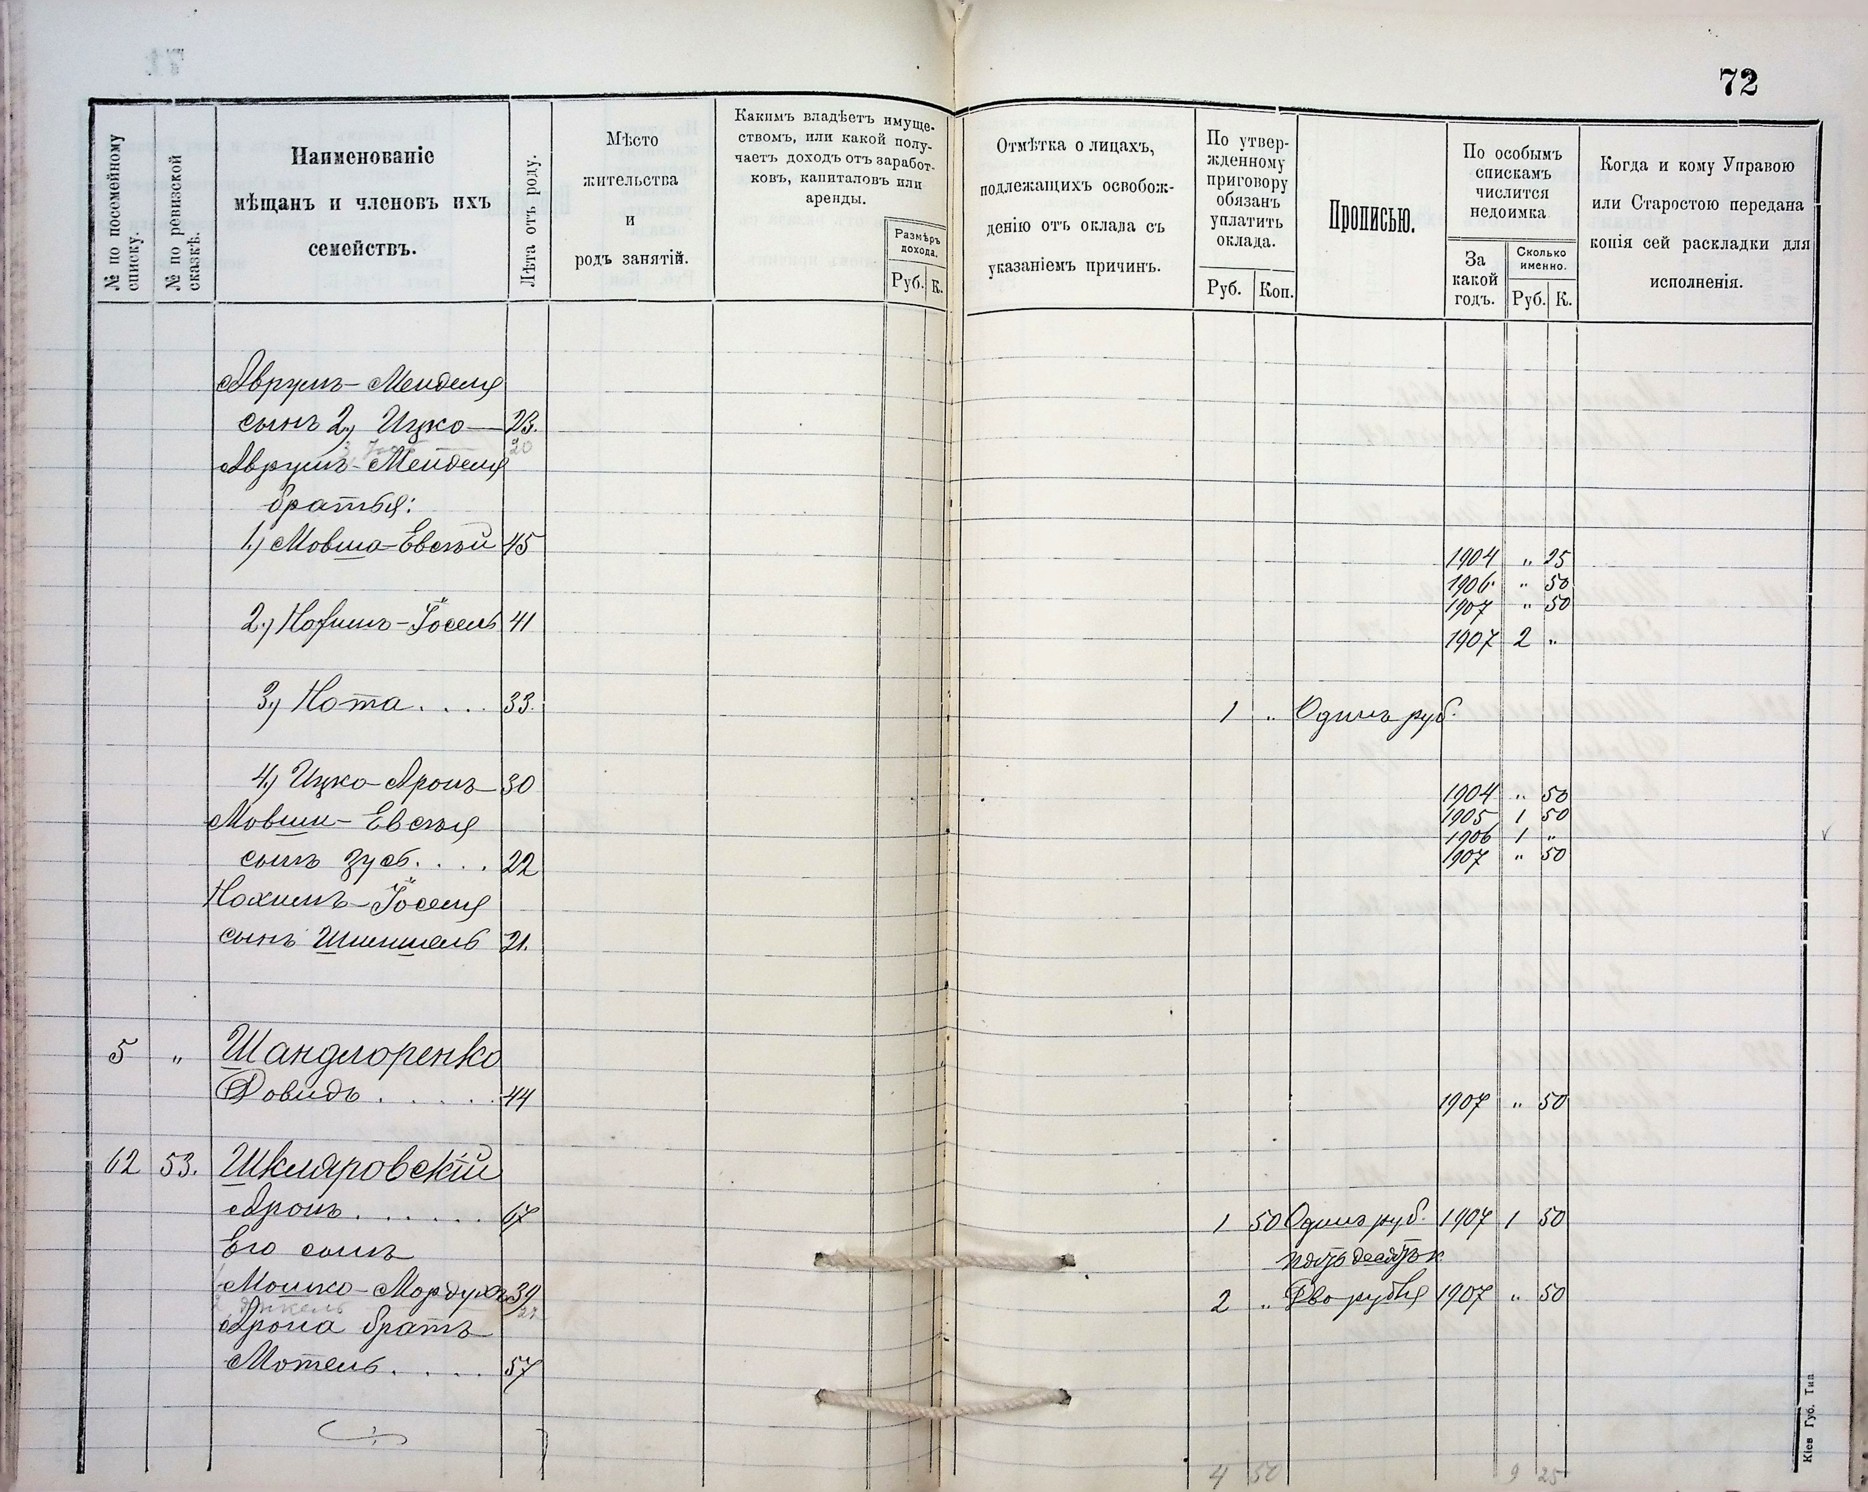 72
№ по посемейному списку.
№ по ревизской сказкѣ.
Наименованіе
мѣщанъ и членовъ ихъ
семействъ.
Лѣта отъ роду.
Мѣсто
жительства
и
родъ занятій.
Какимъ владѣетъ имуще-
ствомъ, или какой полу-
чаетъ доходъ отъ заработ-
ковъ, капиталовъ или
аренды.
Размѣръ
дохода.
Руб. К.
Отмѣтка о лицахъ,
подлежащихъ освобож-
денію отъ оклада съ
указаніемъ причинъ.
По утвер-
жденному
приговору
обязанъ
уплатить
оклада.
Руб. Коп.
Прописью.
По особымъ
спискамъ
числится
недоимка
За
какой
годъ.
Сколько
именно.
Руб. К.
Когда и кому Управою
или Старостою передана
копія сей раскладки для
исполненія.
Аврумъ-Менделя
сынъ 2) Ицко 23.
20
Аврумъ-Менделя
братья:
1.) Мовша-Евсѣй 45 1904 " 25
1906 " 50
1907 " 50
2.) Нохимъ-Іосель 41 1907 2 "
3) Нота.... 33. 1 " Одинъ руб.
4) Ицко-Аронъ 30 1904 " 50
Мовши-Евсѣя 1905 1 50
1906 1 "
сынъ Зусь.... 22 1907 " 50
Нохимъ-Іоселя
сынъ Шмишель 21.
5 " Шандлоренко
Довидъ...... 44 1907 " 50
62 53. Шкляровскій
Аронъ....... 67 1 50 Одинъ руб. 1907 1 50
Его сынъ пятьдесятъ к
Мошко-Мордухъ 39 2 " Два рубля 1907 " 50
2 Янкель 27
Арона братъ
Мотель..... 57
4 50 9 25
Кіев Губ. Тип